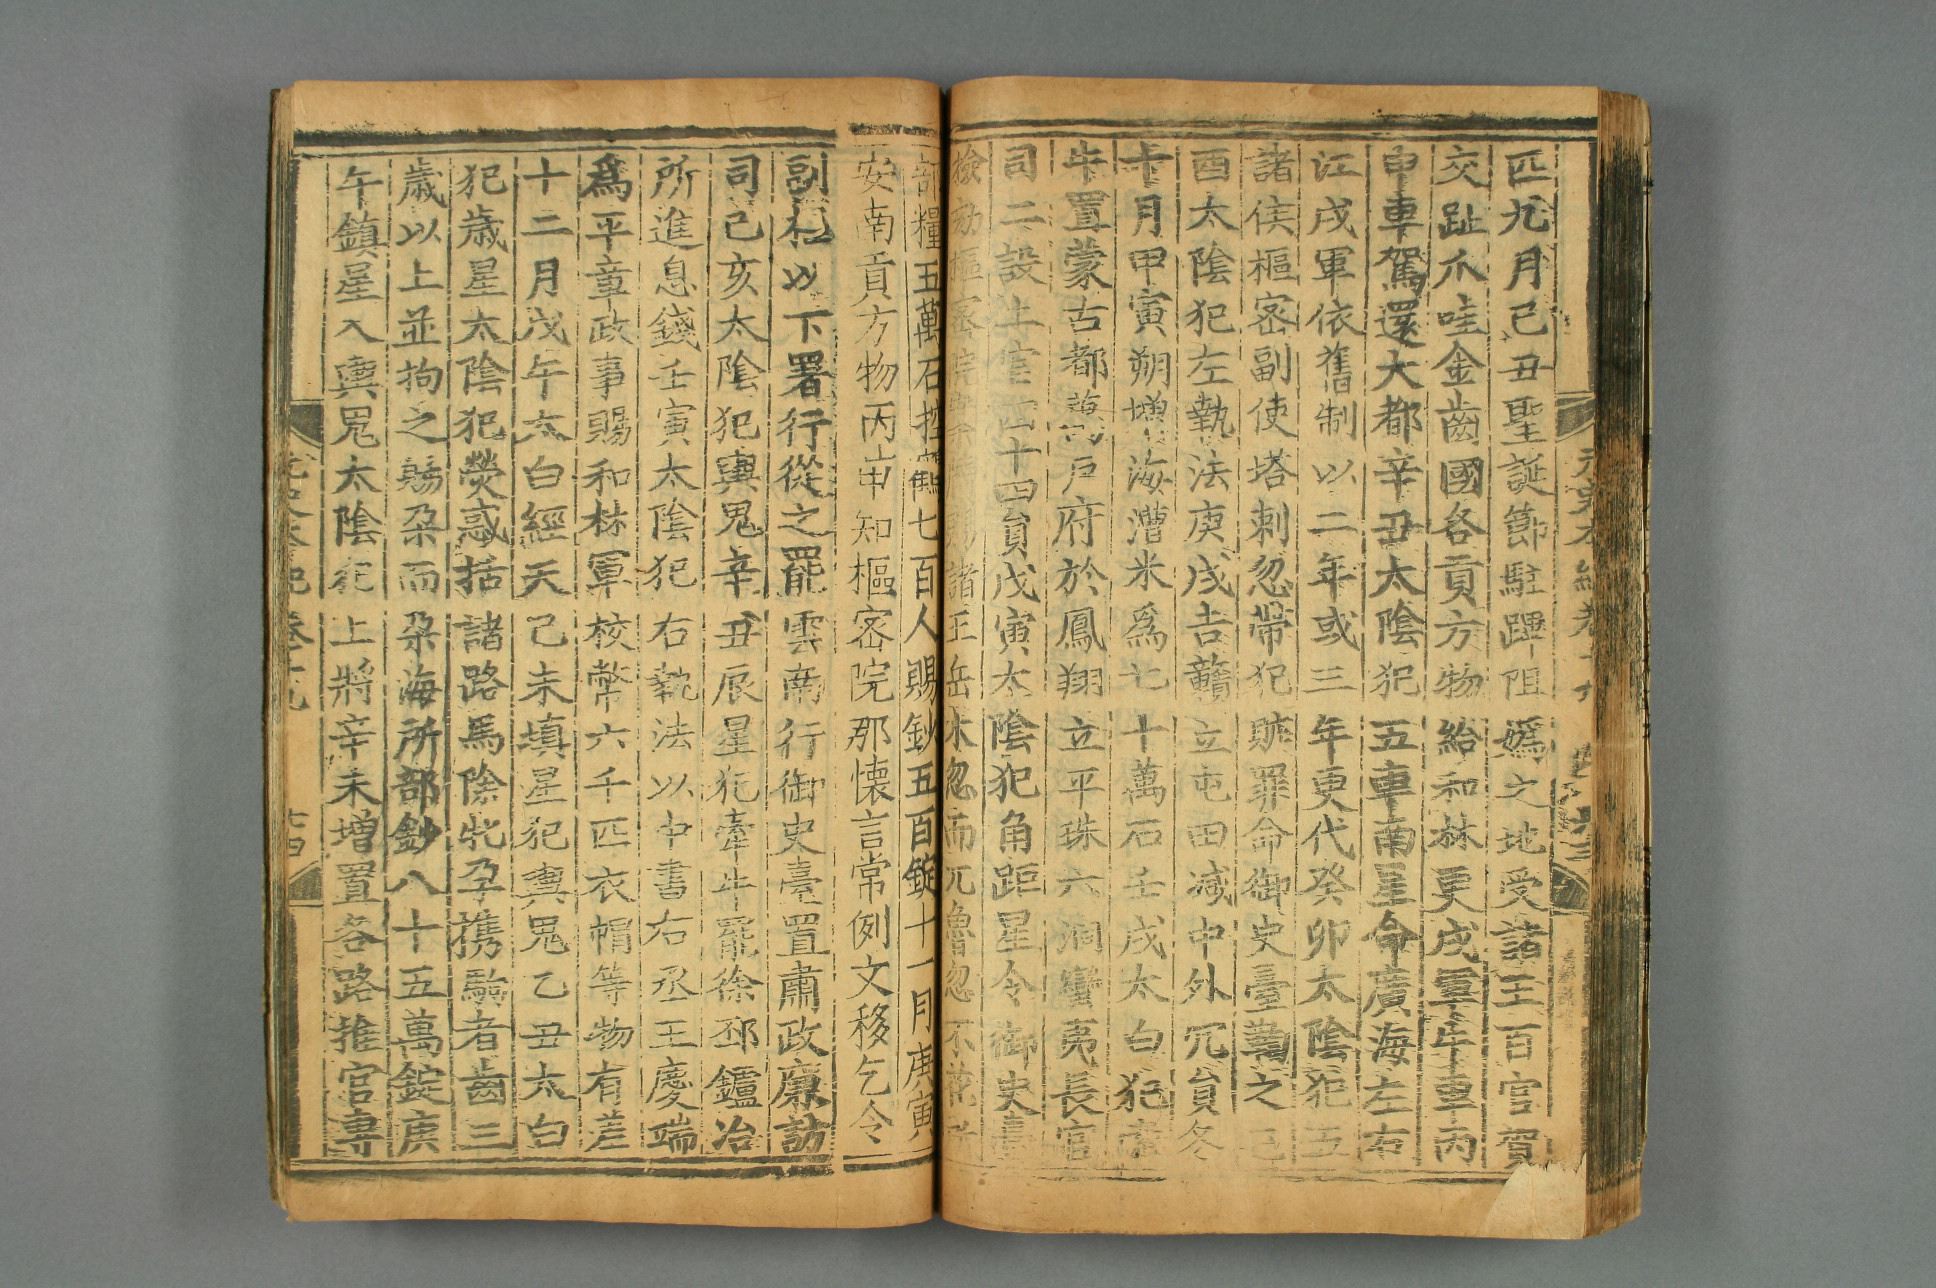 匹九月己丑聖誕節駐蹕阻嬀之地受諸王百官賀
交趾爪哇金齒國各貢方物給和林更戍軍牛車丙
申車駕還大都辛丑太陰犯五車南星命廣海左右
江戍軍依舊制以二年或三年更代癸卯太陰犯五
諸侯樞密副使塔剌忽帶犯贓罪命御史臺鞫之己
酉太陰犯左執法庚戌吉贛立屯田減中外冗員冬
十月甲寅朔增海漕米爲七十萬石壬戌太白犯牽
牛置蒙古都萬戶府於鳳翔立平珠六洞蠻夷長官
司二設土官四十四員戊寅太陰犯角距星令御史臺
檢劾樞密院諸王岳木忽而兀魯忽不花所
部糧五萬石七百人賜鈔五百錠十一月庚寅
安南貢方物丙申知樞密院那懷言常例文移乞令
副樞以下署行從之罷雲南行御史臺置肅政廉訪
司己亥太陰犯輿鬼辛丑辰星犯牽牛罷徐邳鑪冶
所進息錢壬寅太陰犯右執法以中書右丞王慶端
爲平章政事賜和林軍校幣六千匹衣帽等物有差
十二月戊午太白經天己未填星犯輿鬼乙丑太白
犯歲星太陰犯熒惑括諸路馬除牝孕携駒者齒三
歲以上並拘之賜朶而朶海所部鈔八十五萬錠庚
午鎮星入輿鬼太陰犯上將辛未增置各路推官專
元史本紀卷十九
十四